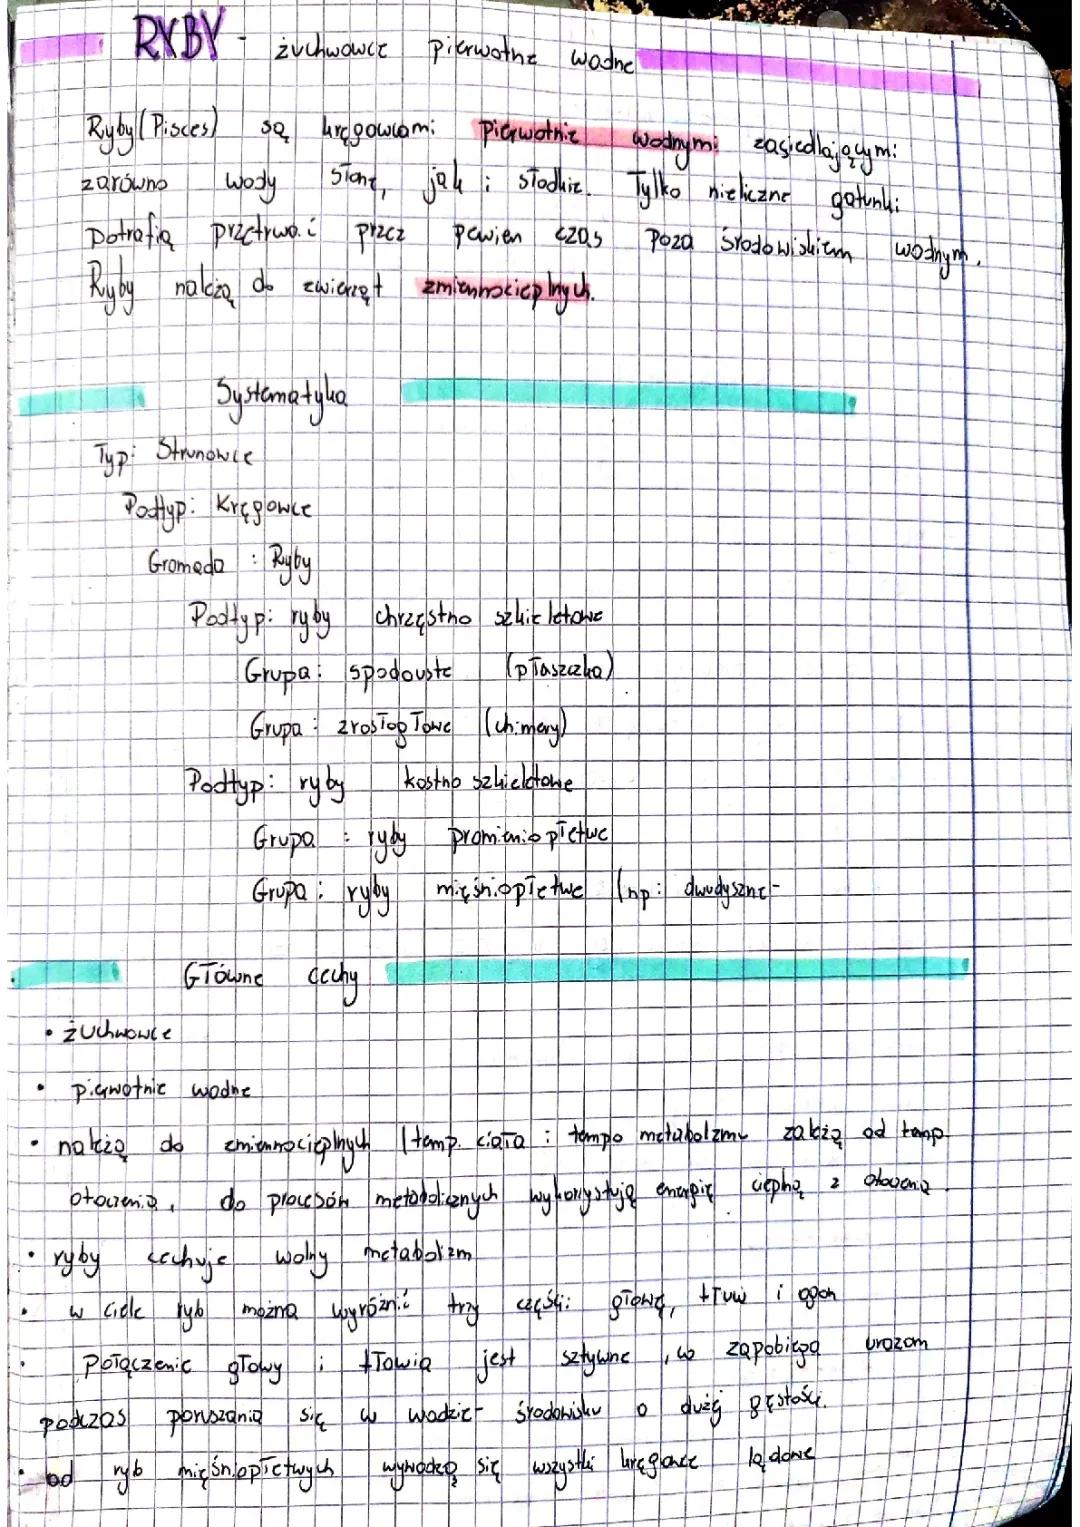 RYBY - żuchwowce pierwotne wodne
Ryby (Pisces) są kręgowcami pierwotnie wodnymi zasiedlającymi
zarówno wody słone, jak i słodkie. Tylko nieliczne gatunki
potrafią przetrwać przez pewien czas poza środowiskiem wodnym.
Ryby należą do zwierząt zmiennocieplnych.
Systematyka
Typ: Strunowce
Podtyp: Kręgowce
Gromada : Ryby
Podtyp: ryby chrzęstno szkieletowe
Grupa: spodouste (płaszczka)
Grupa : zrosłogłowe (chimery)
Podtyp: ryby kostno szkieletowe
Grupa : ryby promieniopłetwe
Grupa : ryby mięśniopłetwe (np: dwudyszne-
Główne cechy
• żuchwowce
• pierwotnie wodne
• należą do zmiennocieplnych (temp. ciała i tempo metabolizmu zależą od temp
otoczenia, do procesów metabolicznych wykorzystują energię cieplną z otoczenia.
• ryby cechuje wolny metabolizm
• w ciele ryb można wyróżnić trzy części: głowę, tłuw i ogon
• połączenie głowy i tłowia jest sztywne, co zapobiega urazom
podczas poruszania się w wodzie- środowisku o dużej gęstości.
• od ryb mięśniopłetwych wywodzą się wszystkie kręgowce lądowe